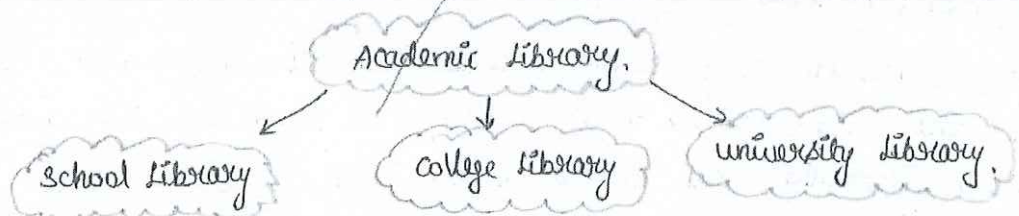 Academic Library.
school Library
college Library
university Library.